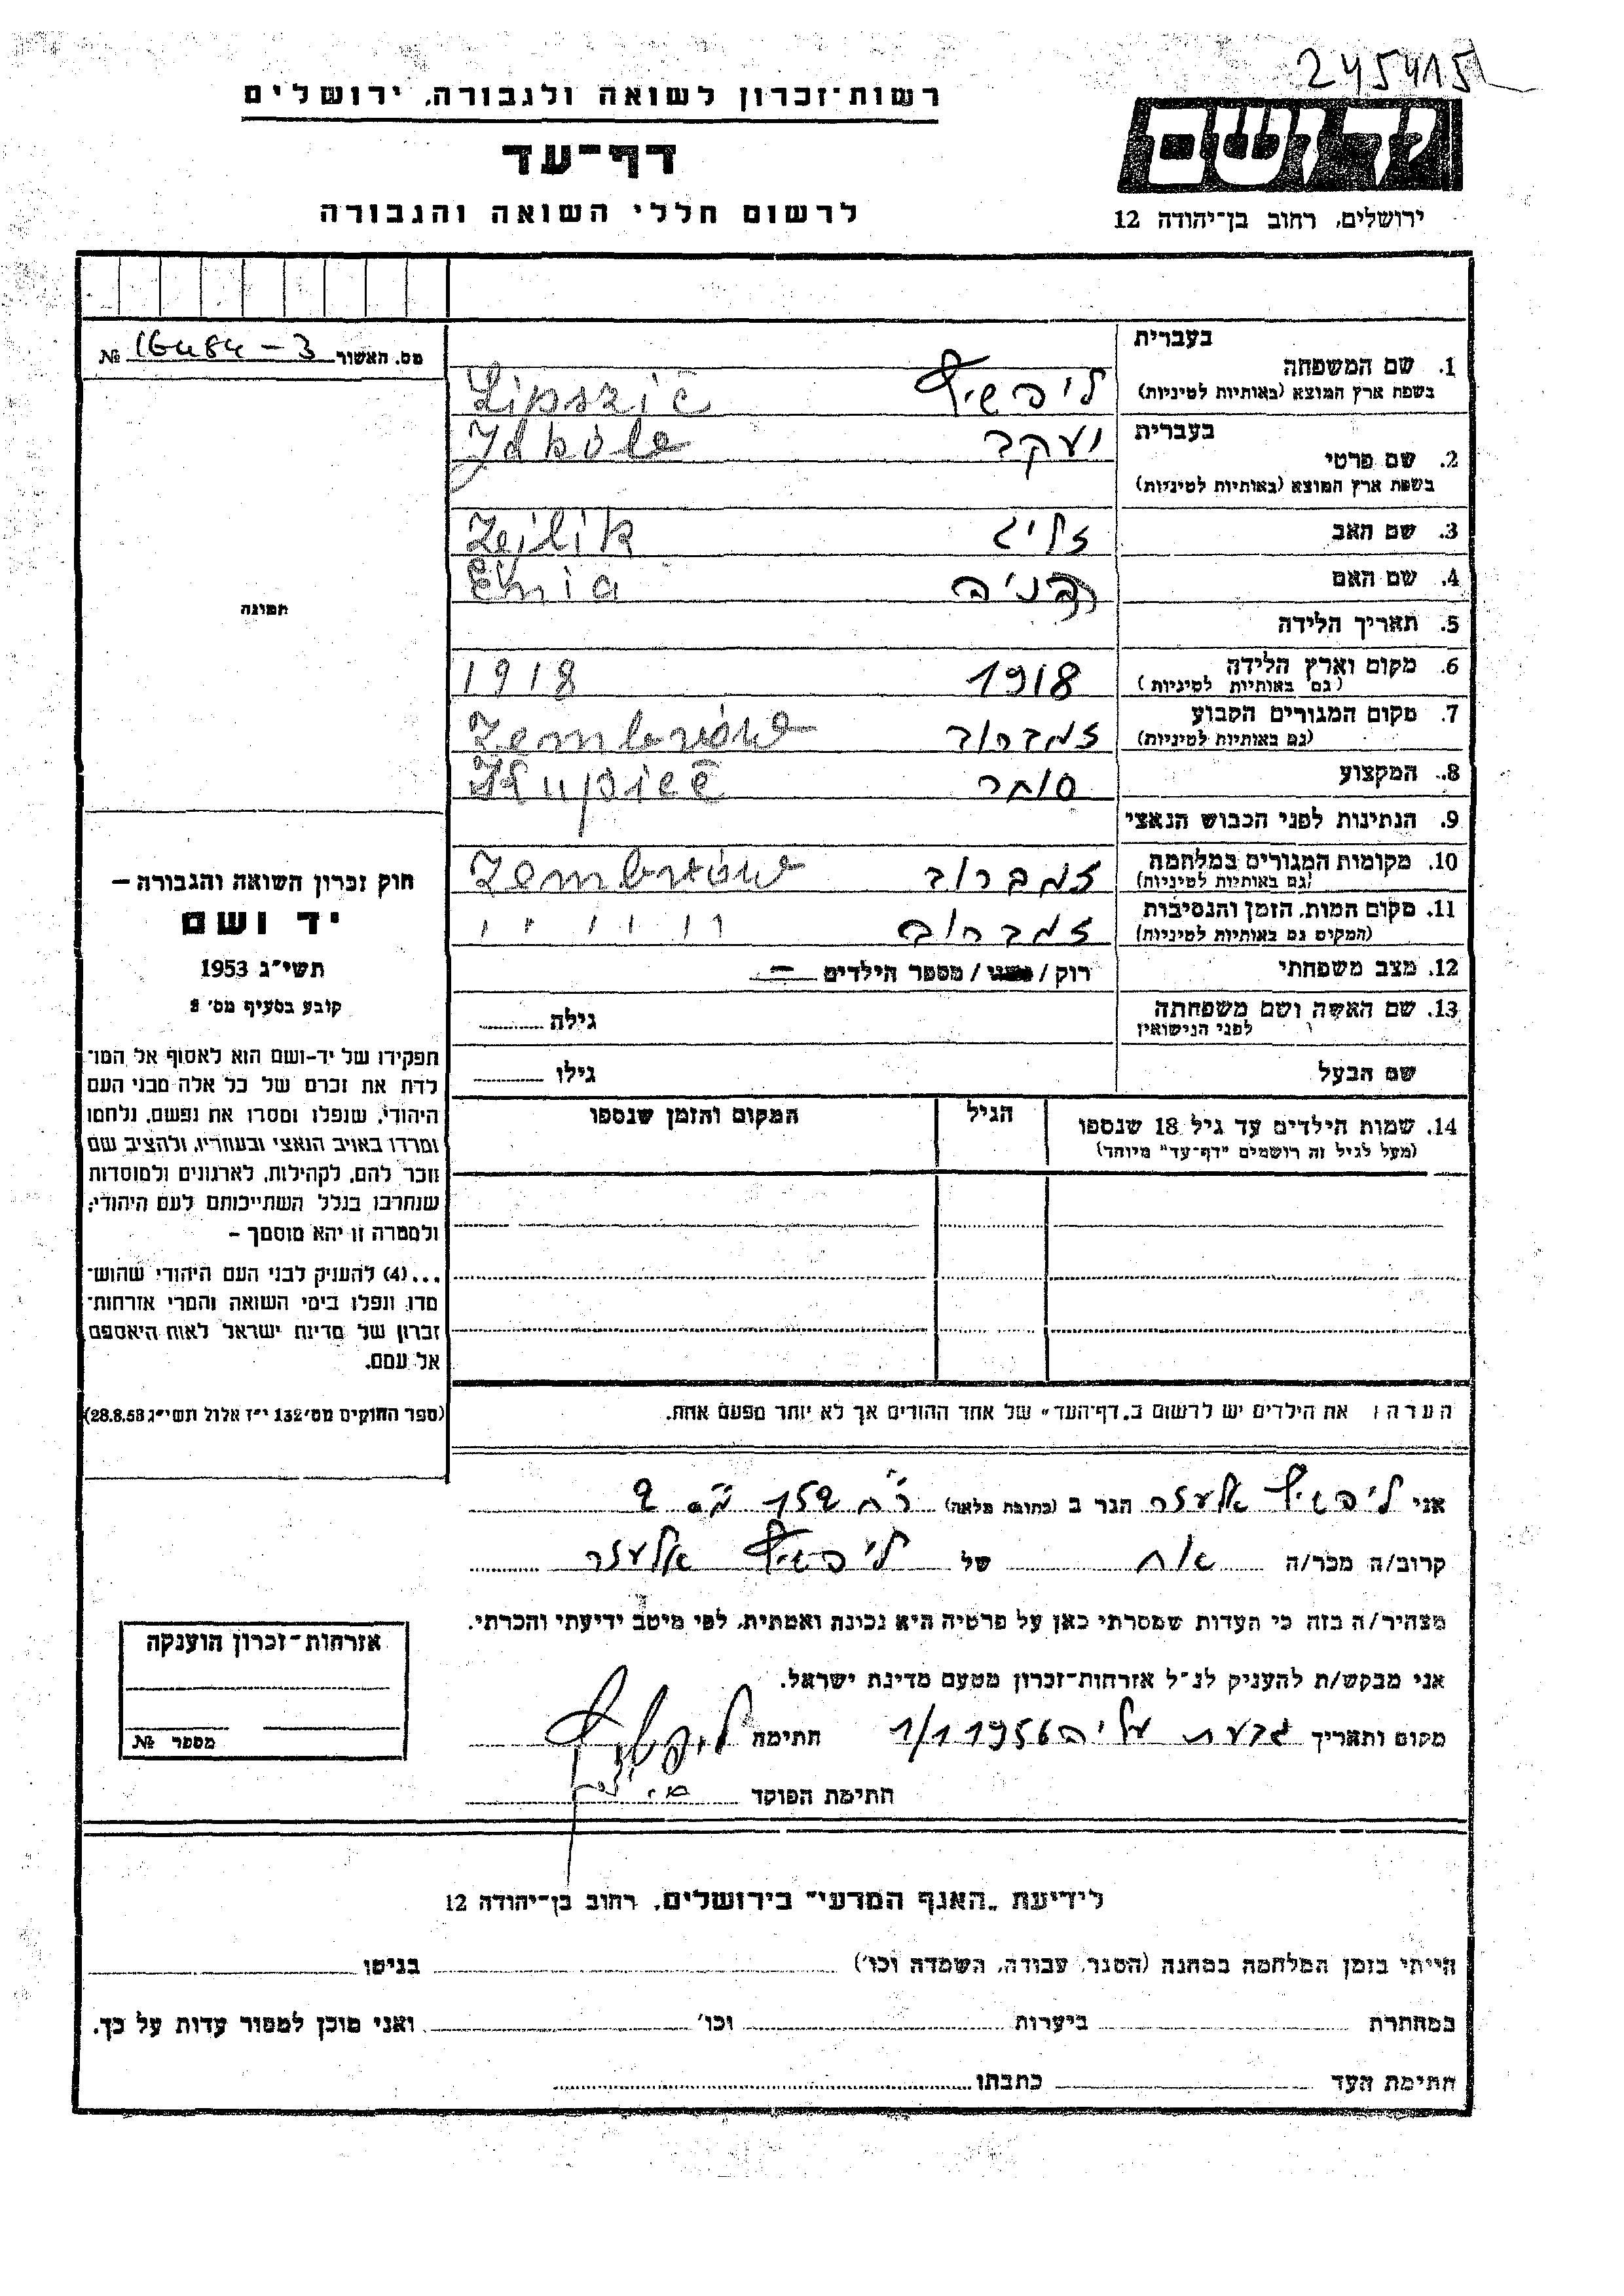 245415
רשות־זכרון לשואה ולגבורה, ירושלים
דף־עד
לרשום חללי השואה והגבורה
יד ושם
ירושלים, רחוב בן־יהודה 12
מס. האשור 16484-3 №
תמונה
1. שם המשפחה
בעברית ליפשיץ
בשפת ארץ המוצא (באותיות לטיניות) Lipszic
2. שם פרטי
בעברית יעקב
בשפת ארץ המוצא (באותיות לטיניות)
3. שם האב זליג Zejlik
4. שם האם
5. תאריך הלידה
6. מקום וארץ הלידה 1918 1918
(גם באותיות לטיניות)
7. מקום המגורים הקבוע זמברוב
(גם באותיות לטיניות)
8. המקצוע סוחר Kupiec
9. הנתינות לפני הכבוש הנאצי
10. מקומות המגורים במלחמה זמברוב Zembrów
(גם באותיות לטיניות)
11. מקום המות, הזמן והנסיבות זמברוב
(המקום גם באותיות לטיניות)
12. מצב משפחתי רוק / נשוי / מספר הילדים –
13. שם האשה ושם משפחתה גילה
לפני הנישואין
שם הבעל גילו
14. שמות הילדים עד גיל 18 שנספו הגיל המקום והזמן שנספו
(מעל לגיל זה רושמים "דף־עד" מיוחד)
חוק זכרון השואה והגבורה –
יד ושם
תשי"ג 1953
קובע בסעיף מס' 2
תפקידו של יד–ושם הוא לאסוף אל המו־
לדת את זכרם של כל אלה מבני העם
היהודי, שנפלו ומסרו את נפשם, נלחמו
ומרדו באויב הנאצי ובעוזריו, ולהציב שם
וזכר להם, לקהילות, לארגונים ולמוסדות
שנחרבו בגלל השתייכותם לעם היהודי;
ולמטרה זו יהא מוסמך –
...(4) להעניק לבני העם היהודי שהוש־
מדו ונפלו בימי השואה והמרי אזרחות־
זכרון של מדינת ישראל לאות היאספם
אל עמם.
(ספר החוקים מס' 132 י"ז אלול תשי"ג 28.8.53)
הערה: את הילדים יש לרשום ב„דף־העד" של אחד ההורים אך לא יותר מפעם אחת.
אני ליפשיץ אלעזר הגר ב (כתובת מלאה)
קרוב/ה מכר/ה אח של ליפשיץ אלעזר
מצהיר/ה בזה כי העדות שמסרתי כאן על פרטיה היא נכונה ואמתית, לפי מיטב ידיעתי והכרתי.
אני מבקש/ת להעניק לנ"ל אזרחות־זכרון מטעם מדינת ישראל.
מקום ותאריך גבעת עליה 1/1 1956 חתימה ליפשיץ
חתימת הפוקד
אזרחות־זכרון הוענקה
מספר №
לידיעת „האגף המדעי" בירושלים, רחוב בן־יהודה 12
הייתי בזמן המלחמה במחנה (הסגר, עבודה, השמדה וכו') בגיטו
במחתרת ביערות וכו' ואני מוכן למסור עדות על כך.
חתימת העד כתבתו